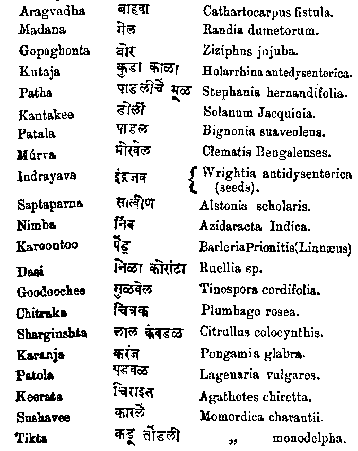 Aragvadha बाहवा Cathartocarpus fistula.
Madana गेल Randia dumetorum.
Gopaghonta बोर Ziziphus jujuba.
Kutaja कुडा काळा Holarrhina antedysenterica.
Patha पाडलीचें मूळ Stephania hernandifolia.
Kantakee डोर्ली Solanum Jacquinia.
Patala पाडल Bignonia suaveolens.
Múrva मोरवेल Clematis Bengalenses.
Indrayava इंद्रजव { Wrightia antidysenterica
(seeds).
Saptaparna सात्वीण Alstonia scholaris.
Nimba निंब Azidaracta Indica.
Karoontoo पेंडू BarleriaPrionitis(Linnæus)
Dasi निळा कोरांटा Ruellia sp.
Goodoochee गुळवेल Tinospora cordifolia.
Chitraka चित्रक Plumbago rosea.
Sharginshta लाल कंवडळ Citrullus colocynthis.
Karanja करंज Pongamia glabra.
Patola पडवळ Lagenaria vulgares.
Keerata चिराइत Agathotes chiretta.
Sushavee कारलें Momordica charantii.
Tikta कडू तोंडली „ monodelpha.